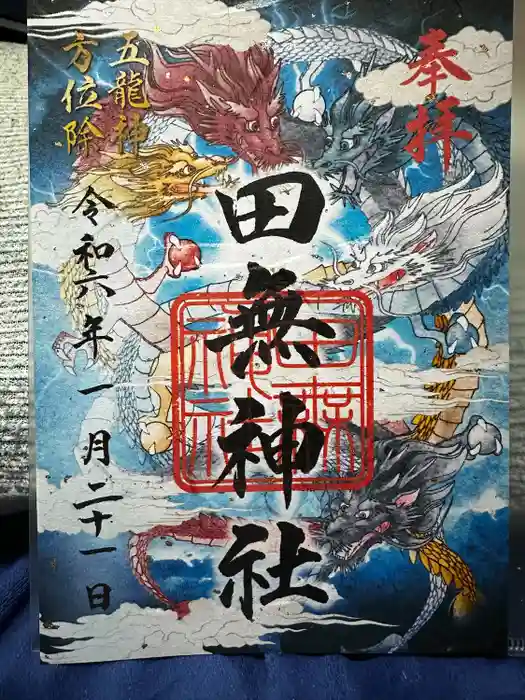 奉拝
田無神社
五龍神
方位除
令和六年一月二十一日
田無神社